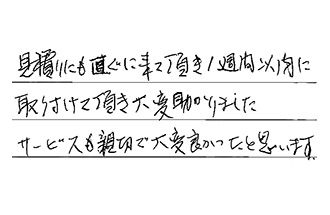 見積りにも直ぐに来て頂き1週間以内に
取り付けて頂き大変助かりました
サービスも親切で大変良かったと思います。